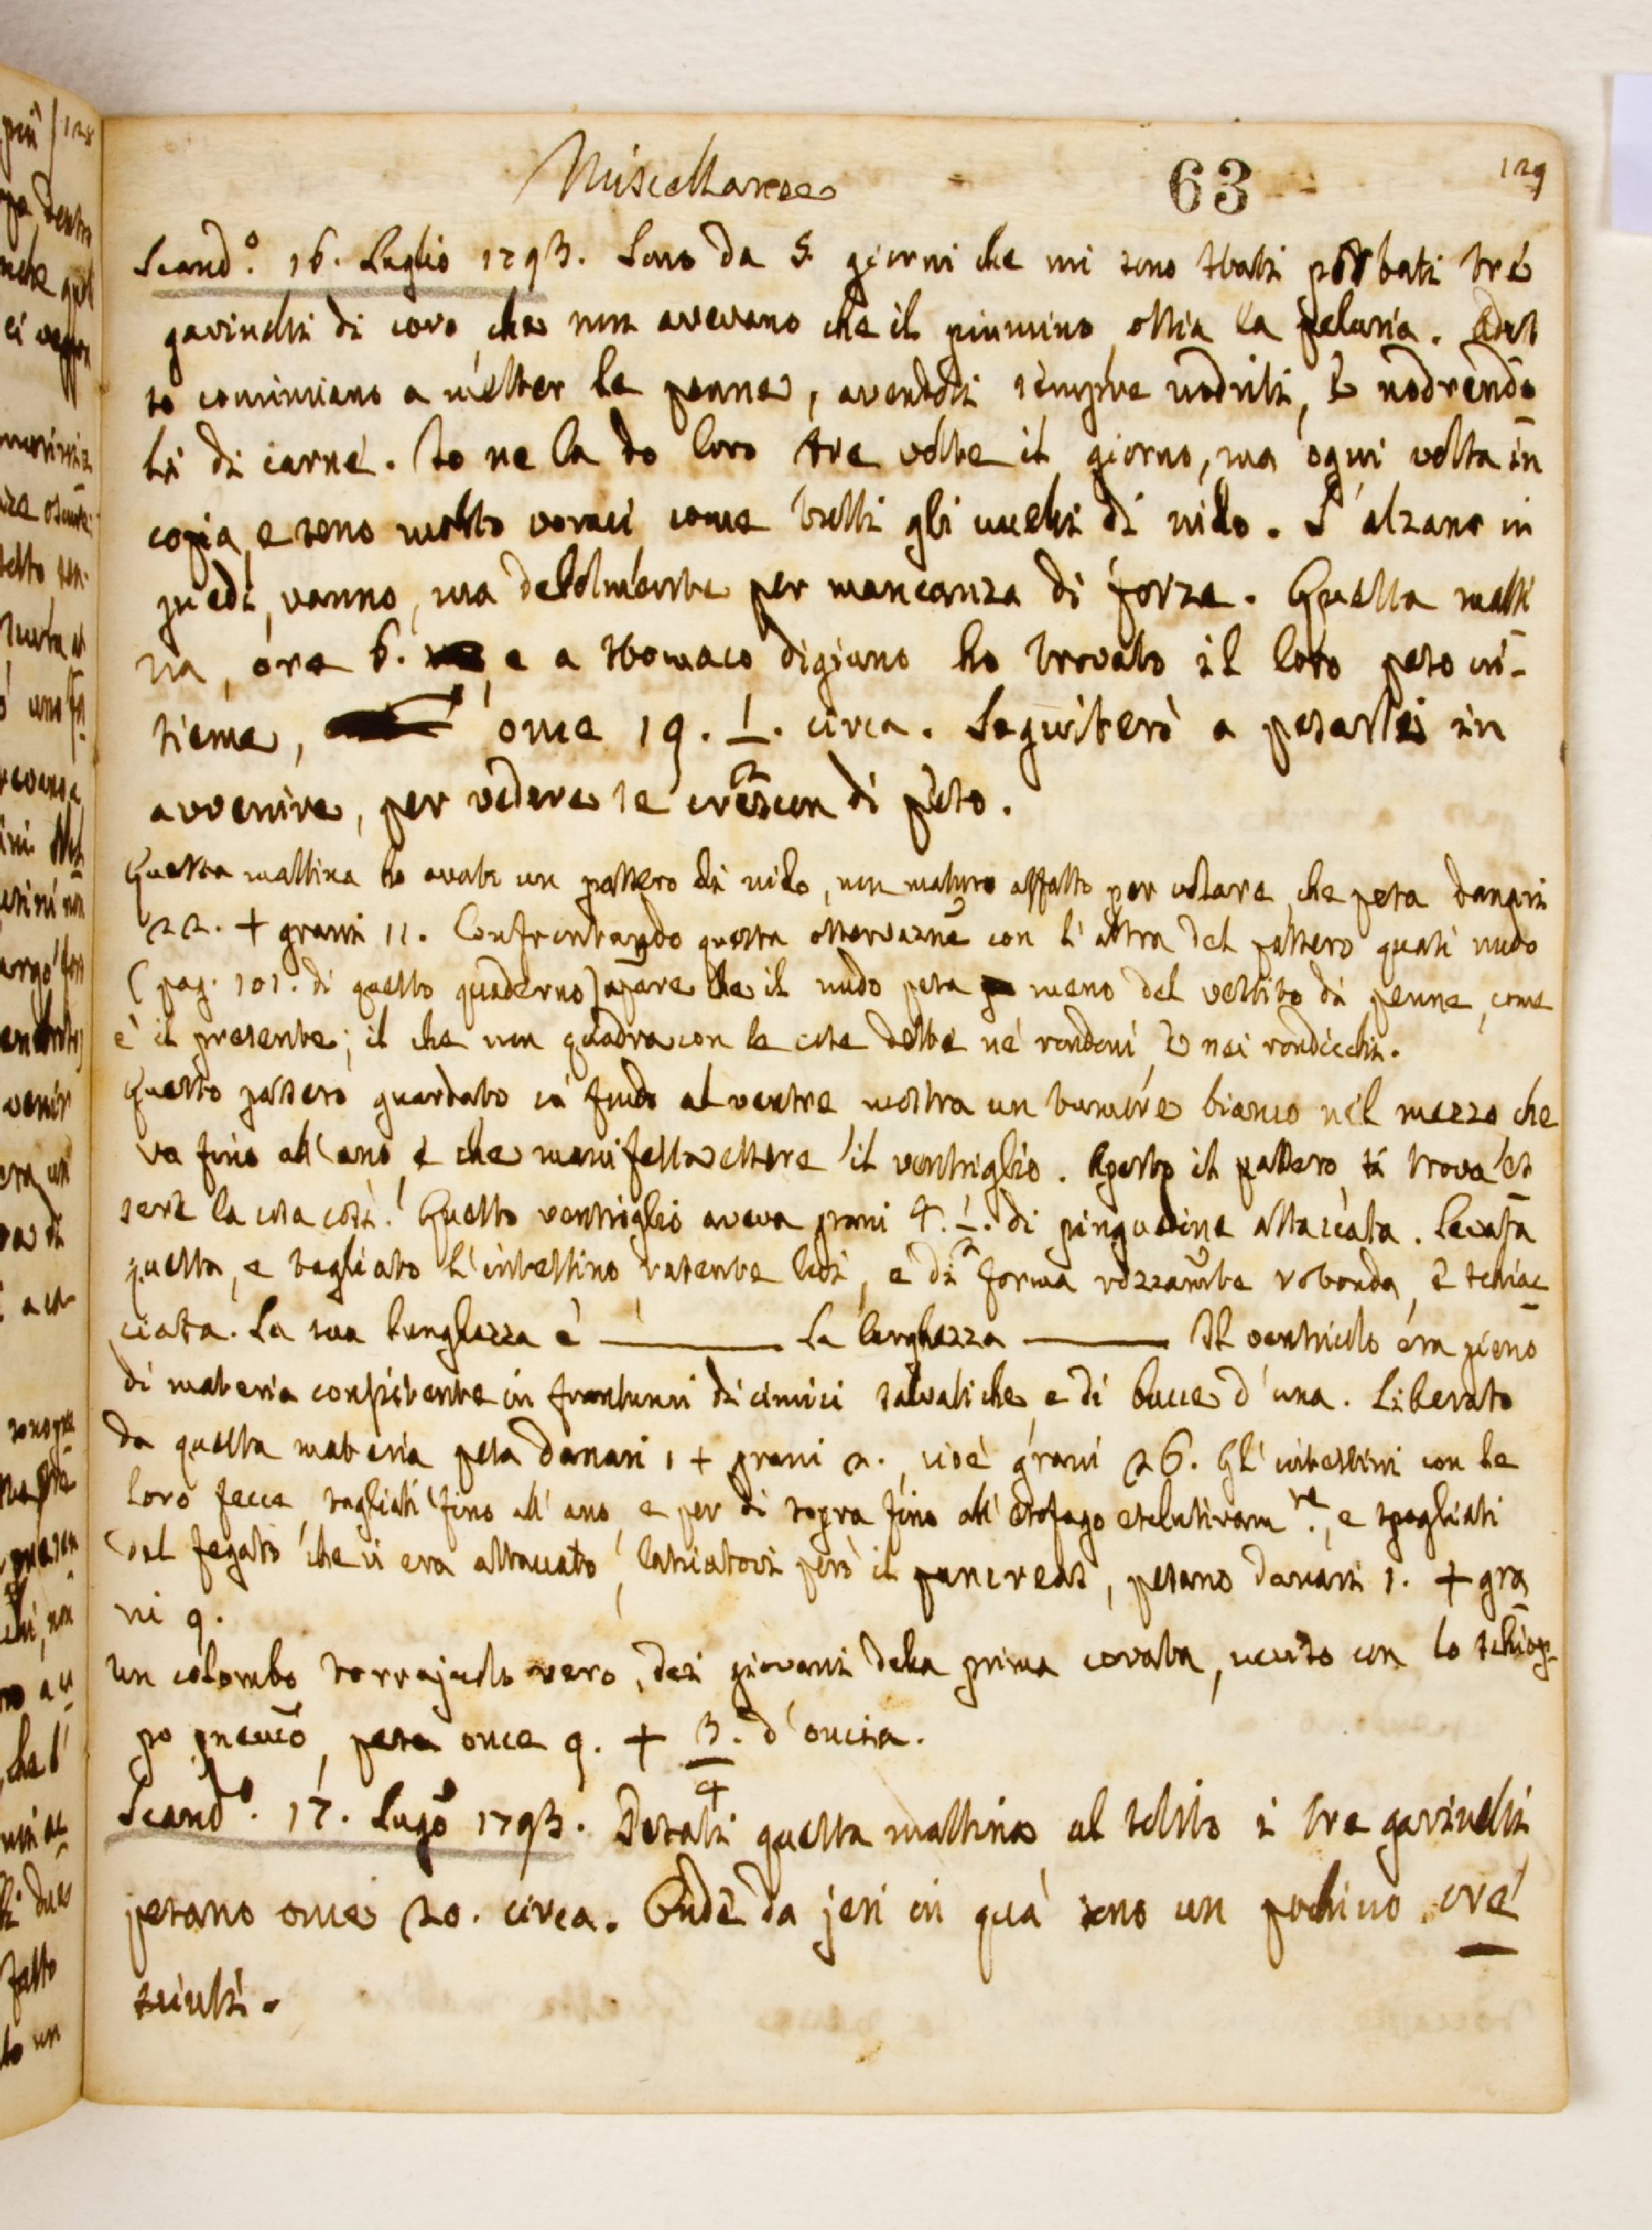 Miscellanee 63 129
Scand.º 16. Luglio 1793. Sono da 5. giorni che mi sono stati portati tré
gavinelli di covo, che non avevano che il piumino ossia la peluria. Ades
so cominciano a metter le penne, avendoli sempre nodriti, e nodrendo
li di carne. Io ne la do loro tre volte il giorno, ma ogni volta in
copia, e sono molto voraci come tutti gli uccelli di nido. S'alzano in
piedi, vanno, ma debolmente per mancanza di forze. Questa matti
na, ore 6. e a stomaco digiuno ho trovato il loro peso in-
sieme, once 19. 1/2. circa. Seguiterò a pesarli in
avvenire, per vedere se crescon di peso.
Questa mattina ho avuto un passero di nido, non maturo affatto per volare, che pesa danari
22. + grani 11. Confrontando questa osservazne con l'altra del passero quasi nudo
(pag. 101. di questo quaderno) apare che il nudo pesa meno del vestito di penne, come
è il presente; il che non quadra con le cose dette ne' rondoni, e nei rondicchi.
Questo passero guardato in fondo al ventre mostra un tumore bianco nel mezzo che
va fino all'ano, e che manifesta essere il ventriglio. Aperto il passero si trova es
sere la cosa così. Questo ventriglio aveva grani 4. 1/2. di pinguedine attaccata. Levata
questa, e tagliato l'intestino rasente lidi, è di forma rozzamte rotonda, e schiac
ciata. La sua lunghezza è ——— La larghezza ——— Il ventricolo era pieno
di materia consistente in frantumi di cimici salvatiche, e di bucce d'uva. Liberato
da questa materia pesa danari 1 + grani 2., cioè grani 26. Gl'intestini con le
loro fecce, tagliati fino all'ano, e per di sopra fino all'esofago esclusivam.te, e spogliati
del fegato che vi era attaccato, lasciatovi però il pancreas, pesano danari 1. + gra
ni 9.
Un colombo torrajuolo vero, dei giovani della prima covata, ucciso con lo schiop-
po pneuco, pesa once 9. + 3/4. d'oncia.
Scand.º 17. Lugº 1793. Pesati questa mattina al solito i tre gavinelli
pesano once 20. circa. Onde da jeri in quà sono un pochino cre
sciuti.